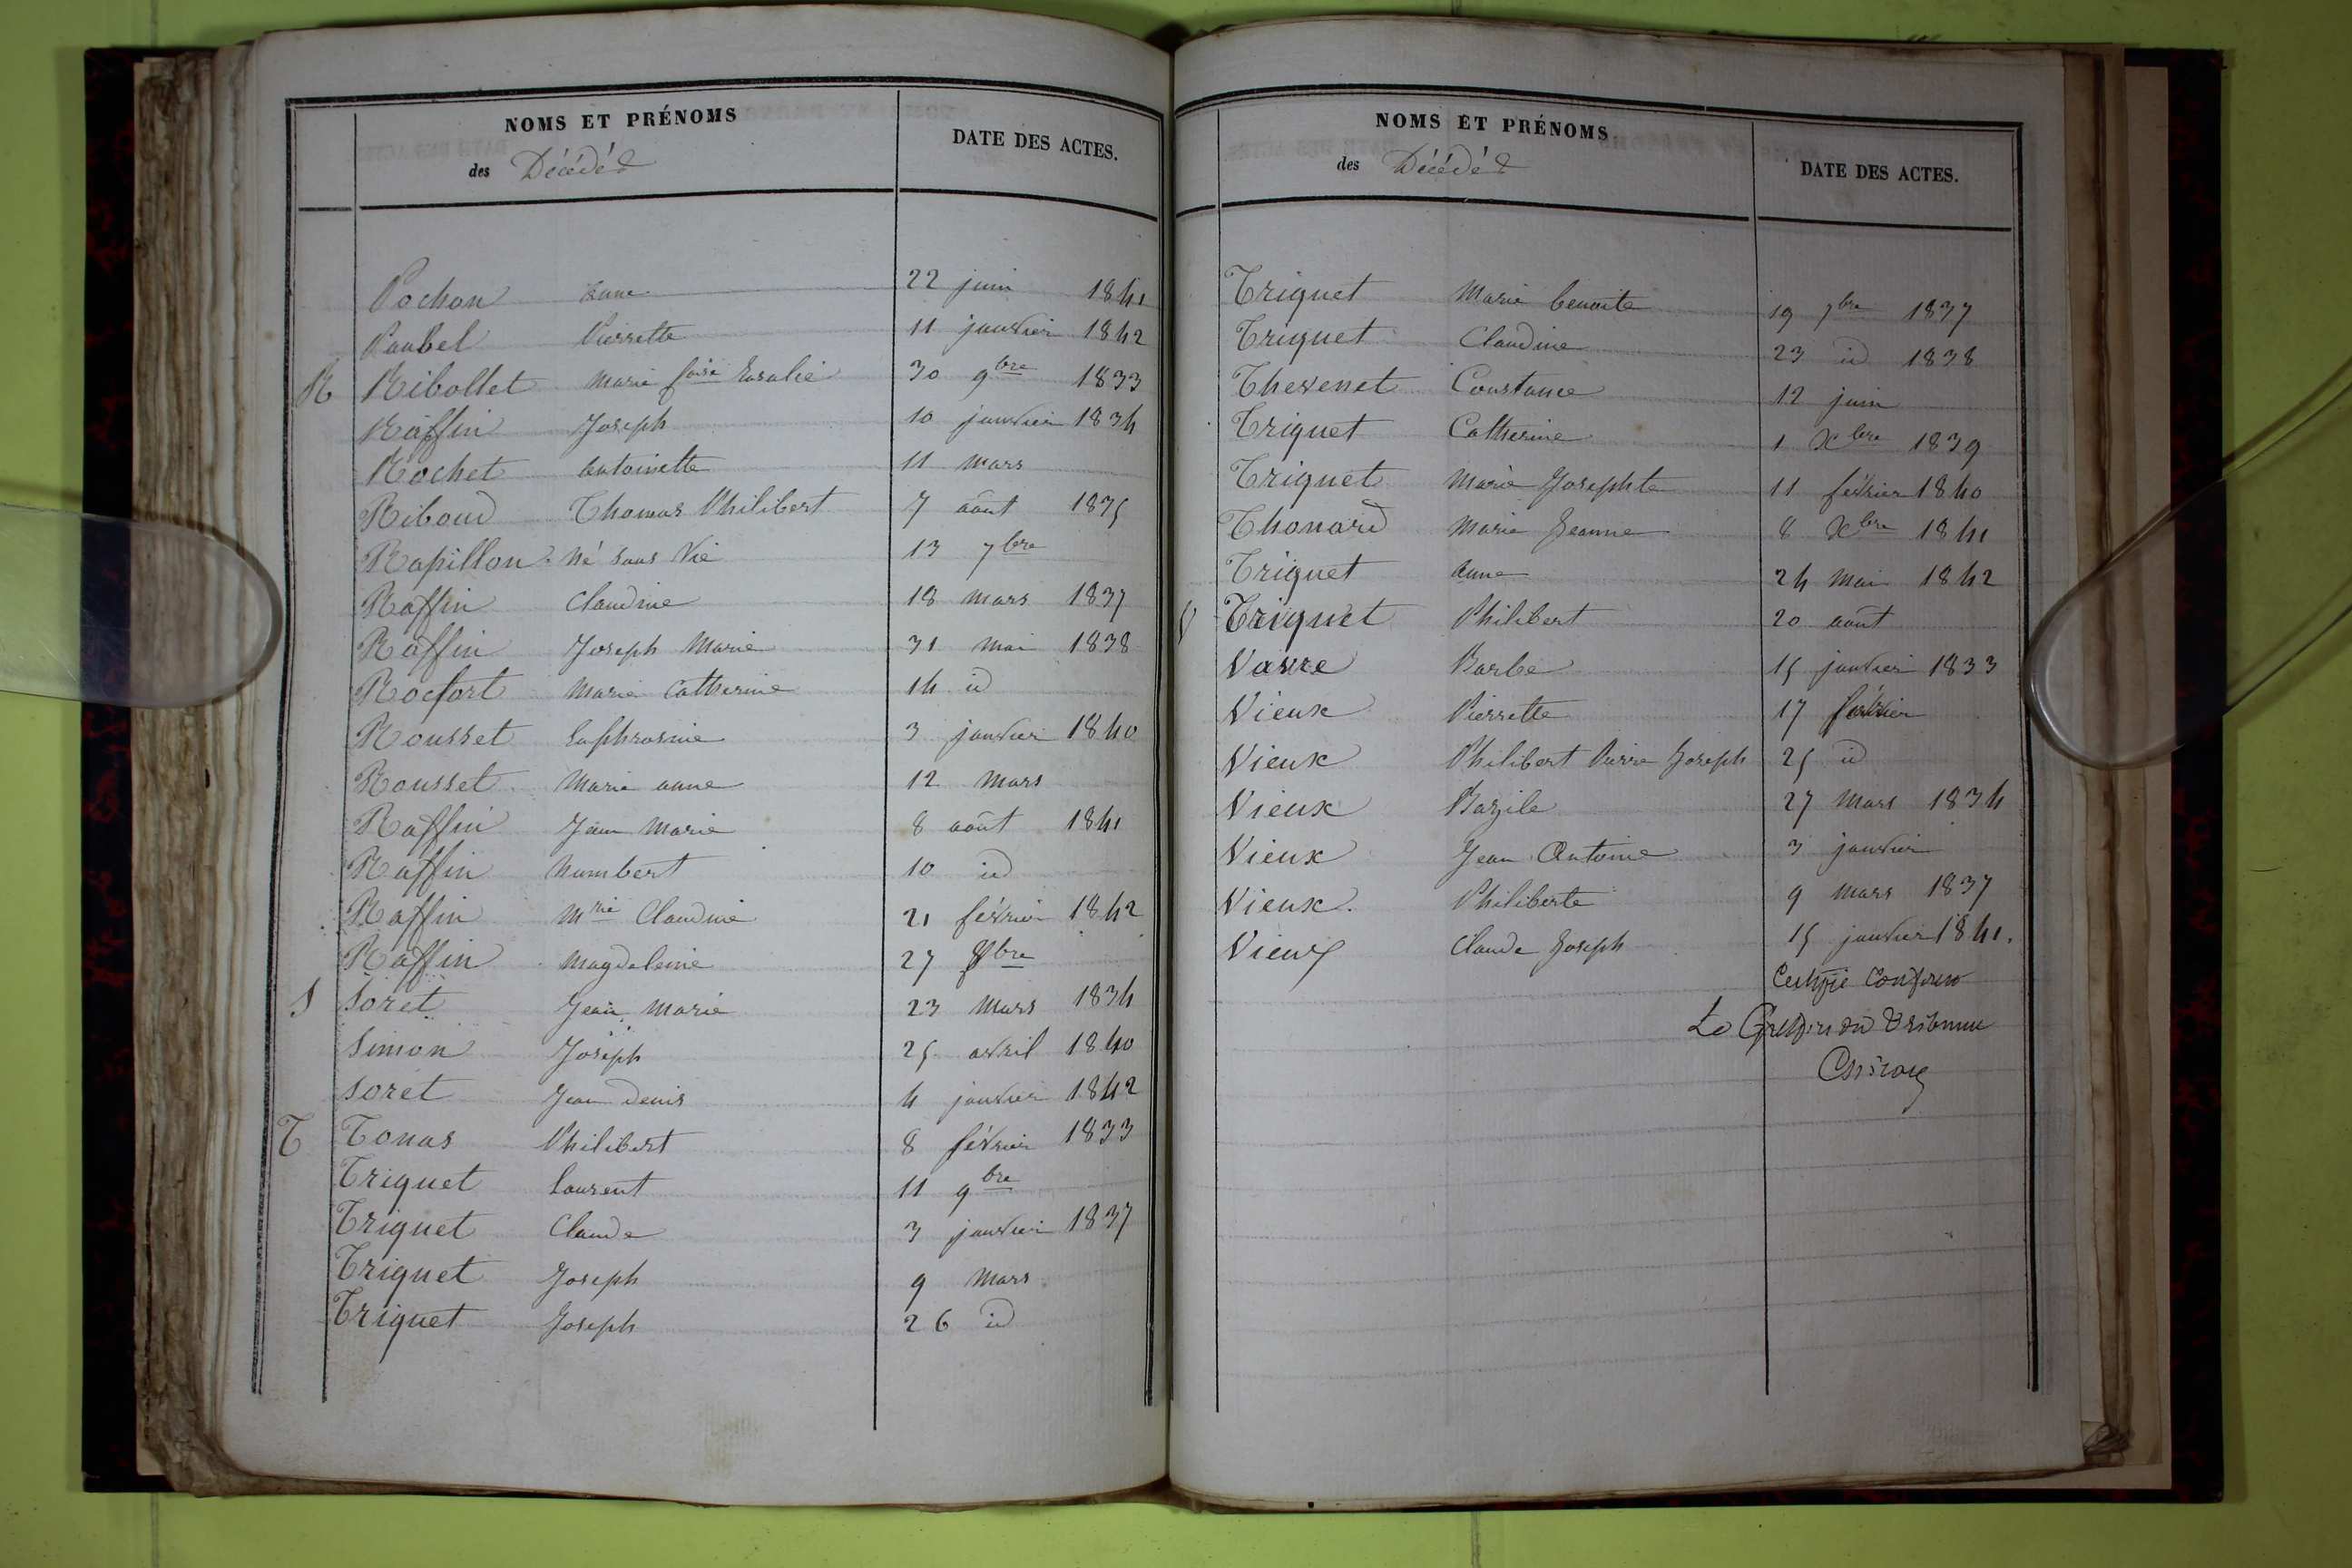 NOMS ET PRÉNOMS
des Décédés
DATE DES ACTES.
Pochon Anne 22 juin 1841
Paubel Pierrette 11 janvier 1842
R Ribollet Marie foise Rosalie 30 9bre 1833
Raffin Joseph 10 janvier 1834
Rochet Antoinette 11 mars
Riboud Thomas Philibert 7 août 1835
Rapillon né sans vie 13 7bre
Raffin Claudine 18 mars 1837
Raffin Joseph Marie 31 mai 1838
Rocfort Marie Catherine 14 id
Rousset Euphrosine 3 janvier 1840
Rousset Marie anne 12 mars
Raffin Jean Marie 8 août 1841
Raffin humbert 10 id
Raffin Mrie Claudine 21 février 1842
Raffin Magdeleine 27 8bre
S Soret Jean Marie 23 mars 1834
Simon Joseph 25 avril 1840
Soret Jean Denis 4 janvier 1842
T Tonas Philibert 8 février 1833
Triquet Laurent 11 9bre
Triquet Claude 3 janvier 1837
Triquet Joseph 9 mars
Triquet Joseph 26 id
NOMS ET PRÉNOMS
des Décédés
DATE DES ACTES.
Triquet Marie benoite 19 7bre 1837
Triquet Claudine 23 id 1838
Thevenet Constance 12 juin
Triquet Catherine 1 Xbre 1839
Triquet Marie Josephte 11 février 1840
Thonard Marie Jeanne 8 Xbre 1841
Triquet anne 24 mai 1842
V Triquet Philibert 20 août
Vavre Barbe 15 janvier 1833
Vieux Pierrette 17 février
Vieux Philibert Pierre Joseph 25 id
Vieux Bazile 27 mars 1834
Vieux Jean Antoine 3 janvier
Vieux Philiberte 9 mars 1837
Vieux Claude Joseph 15 janvier 1841.
Certifié Conforme
Le Greffier du Tribunal